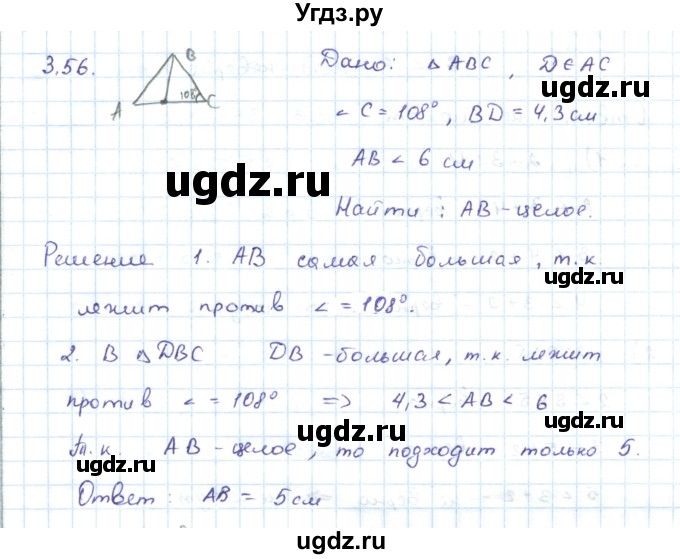 Угдз.ру
3.56.
B
108°
A
C
Дано: △ABC, D∈AC
∠C = 108°, BD = 4,3 см
AB < 6 см
Найти: AB - целое.
ugdz.ru
ugdz.ru
Решение 1. AB самая большая, т.к.
лежит против ∠ = 108°.
ugdz.ru
ugdz.ru
2. В △DBC DB - большая, т.к. лежит
против ∠ = 108° => 4,3 < AB < 6
ugdz.ru
ugdz.ru
Т.к. AB - целое, то подходит только 5.
Ответ: AB = 5 см
ugdz.ru
ugdz.ru